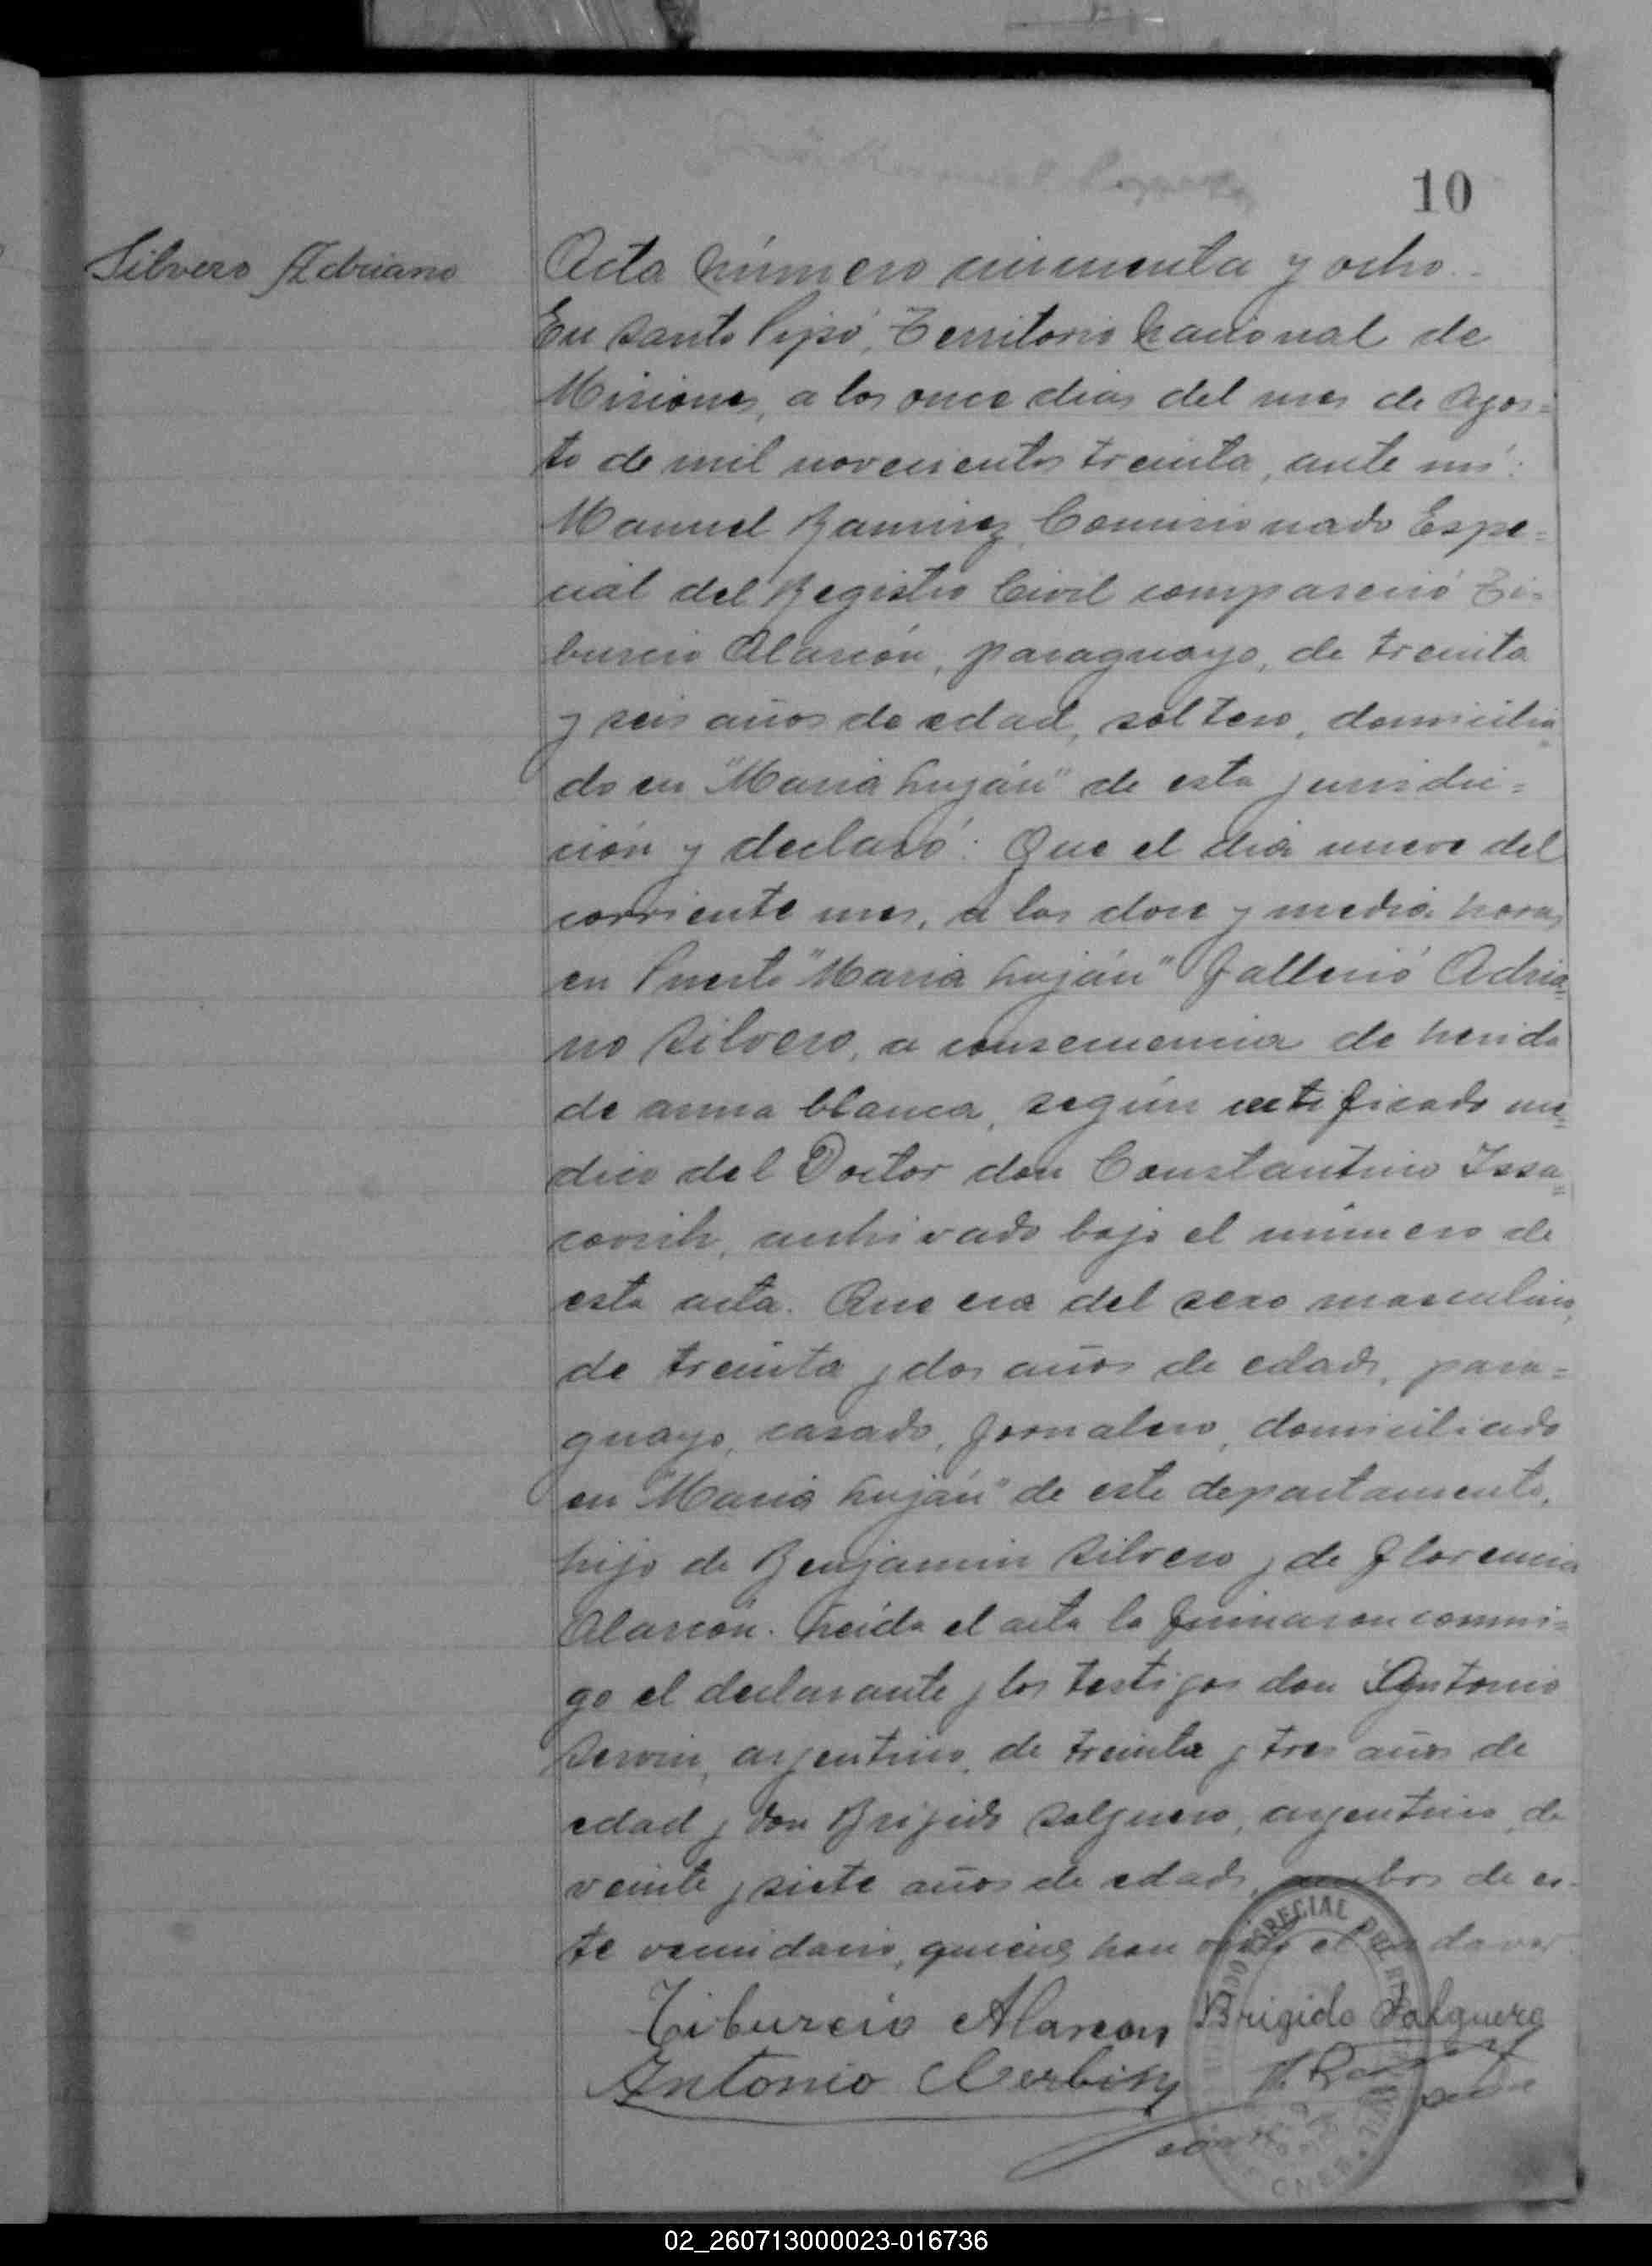 10
Silvero Adriano
Acta número cincuenta y ocho.
En Santo Pipó, Territorio Nacional de
Misiones, a los once dias del mes de Agos=
to de mil novecientos treinta, ante mí:
Manuel Ramirez, Comisionado Espe=
cial del Registro Civil compareció Ti=
burcio Alarcón, paraguayo, de treinta
y seis años de edad, soltero, domicilia=
do en "Maria Luján" de esta jurisdic=
ción y declaró: Que el dia nueve del
corriente mes, a las doce y media horas
en Puerto "Maria Luján" falleció Adria=
no Silvero, a consecuencia de herida
de arma blanca, según certificado mé=
dico del Doctor don Constantino Issa=
covich, archivado bajo el número de
esta acta. Que era del sexo masculino,
de treinta y dos años de edad, para=
guayo, casado, jornalero, domiciliado
en "Maria Luján" de este departamento,
hijo de Benjamin Silvero y de Florencia
Alarcón. Leida el acta la firmaron conmi=
go el declarante y los testigos don Antonio
Servin, argentino, de treinta y tres años de
edad y don Brigido Salguero, argentino, de
veinte y siete años de edad, ambos de es=
te vecindario, quienes han visto el cadaver.
Tiburcio Alarcon Brigido Salguero
Antonio Cerbin
02_260713000023-016736